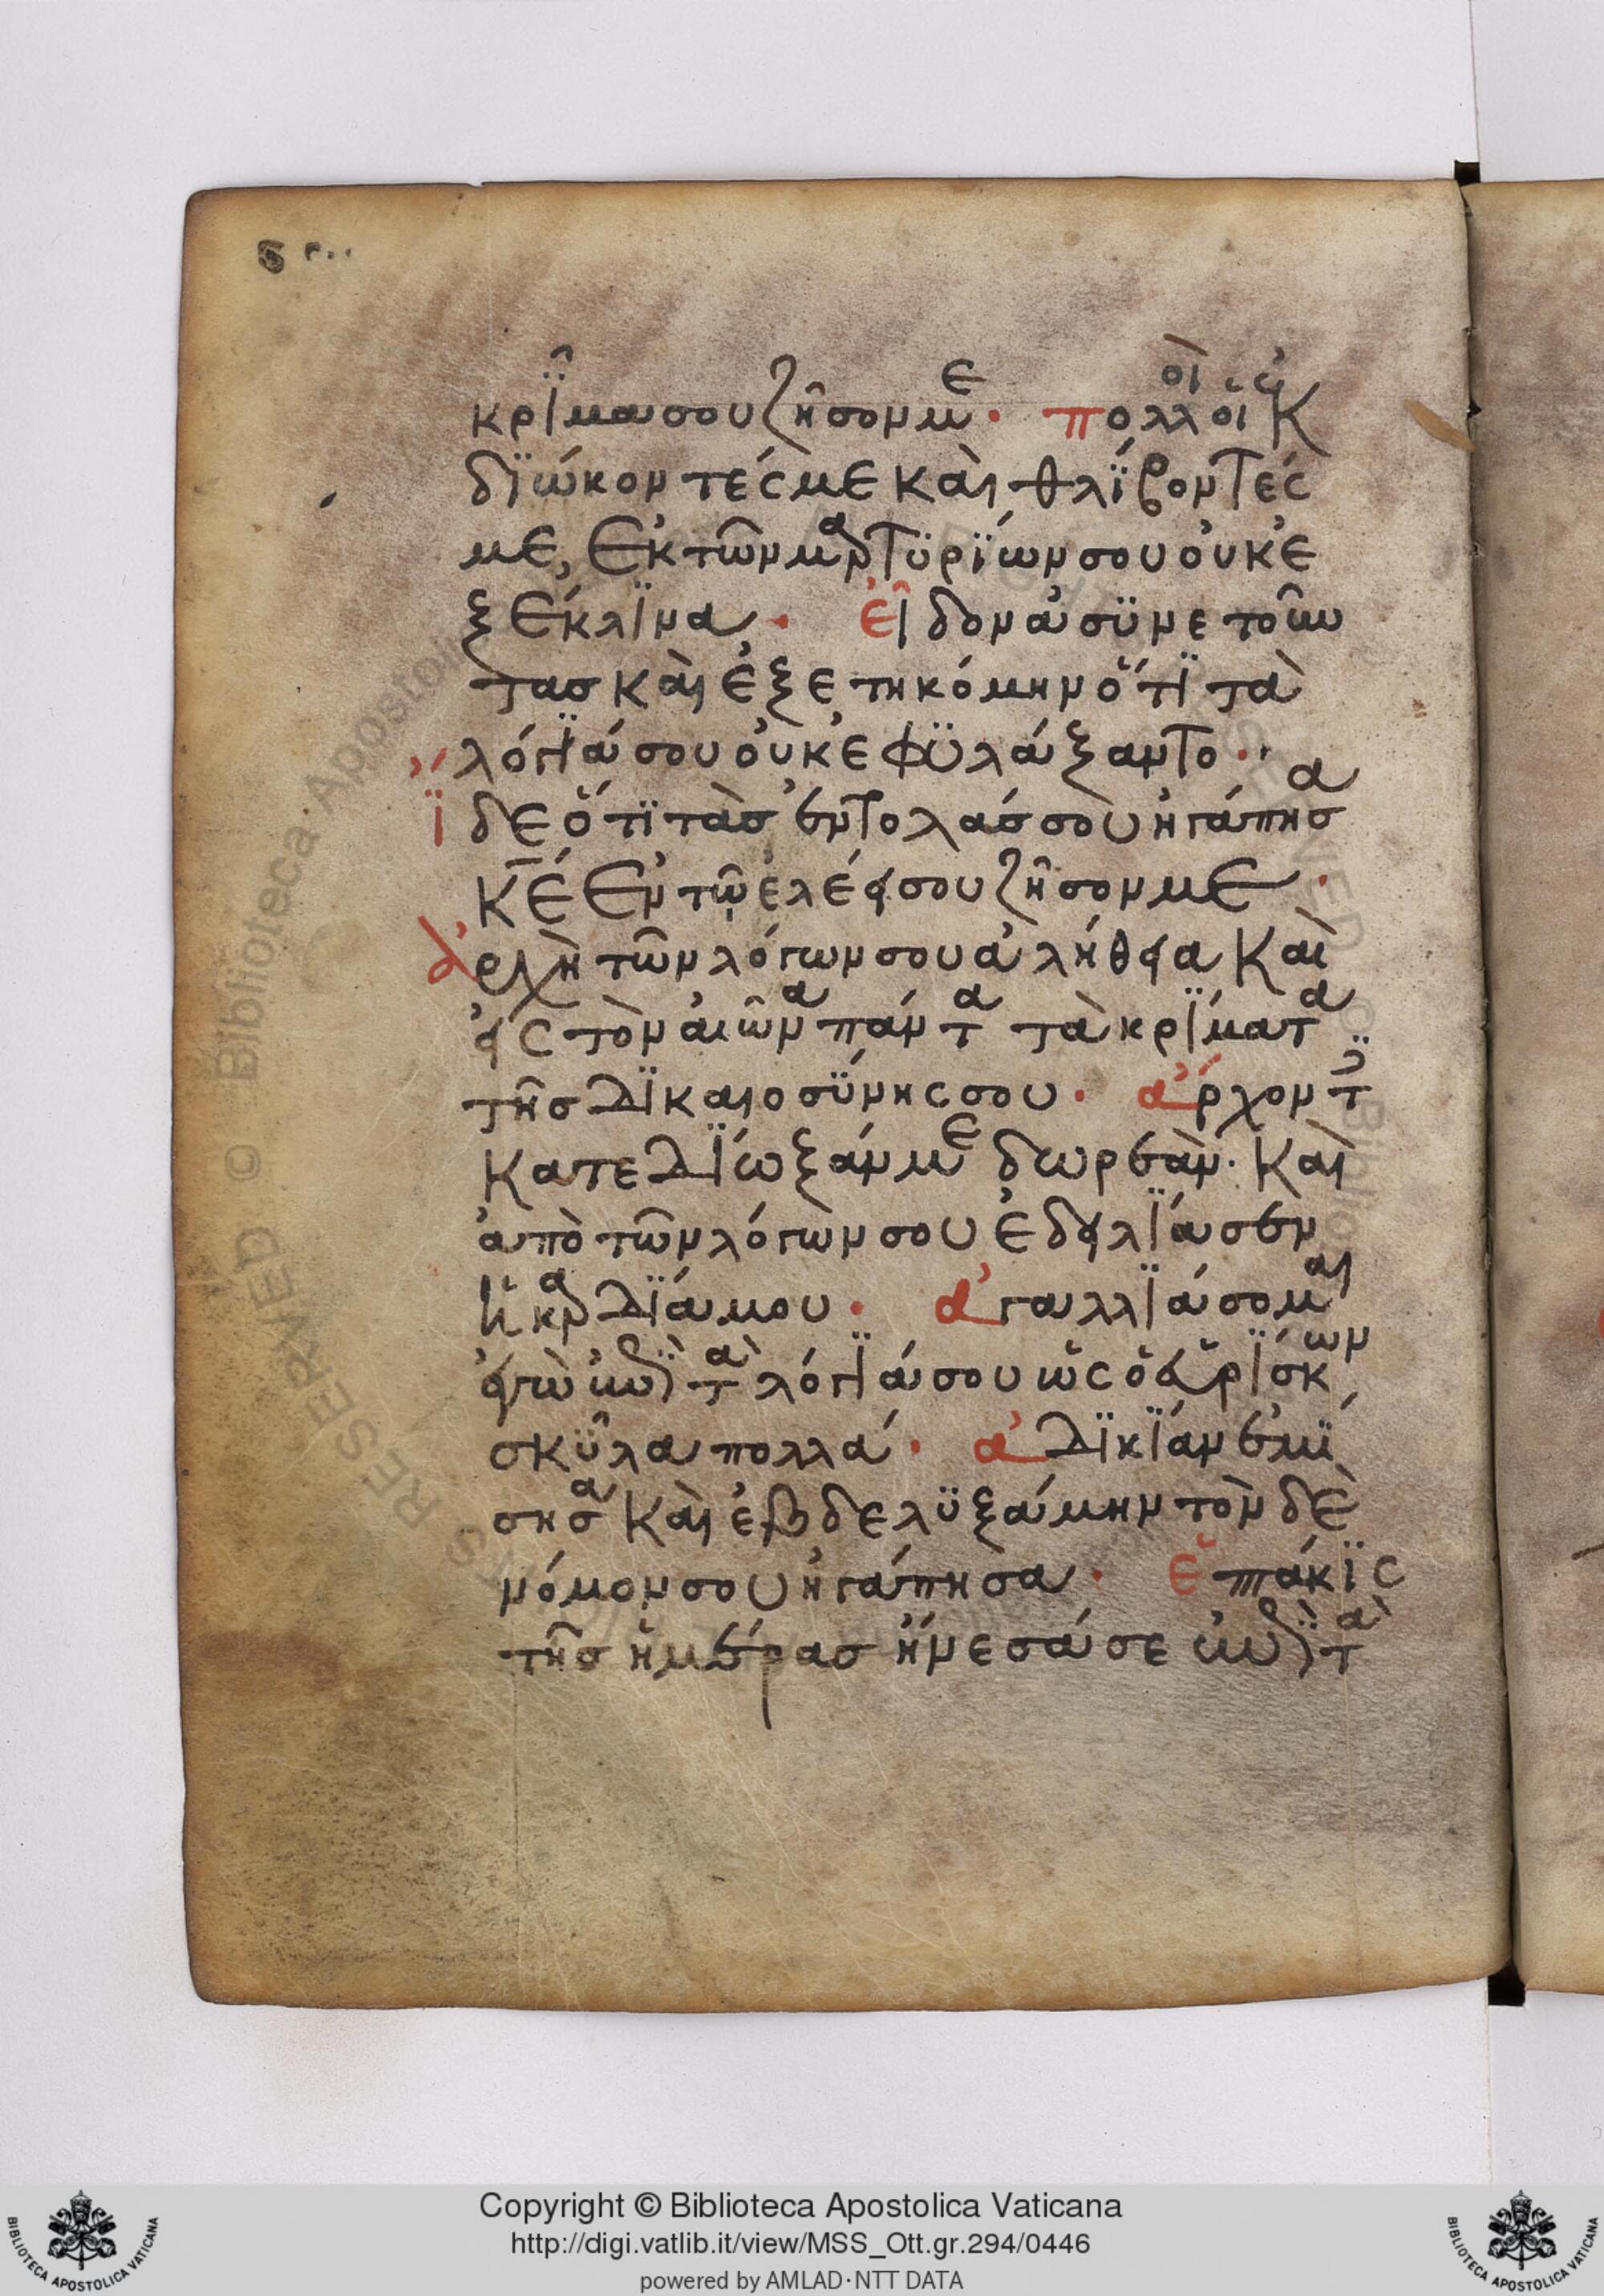 κρῖμα σου ζῆσόν με· πολλοὶ οἱ ἐκ
διώκοντές με καὶ θλίβοντές
με, ἐκ τῶν μαρτυρίων σου οὐκ ἐ
ξέκλινα· εἶδον ἀσυνετοῦν
τας καὶ ἐξετηκόμην ὅτι τὰ
λόγιά σου οὐκ ἐφυλάξαντο·
ἴδε ὅτι τὰς ἐντολάς σου ἠγάπησα
κ̅ε̅ ἐν τῷ ἐλέει σου ζῆσόν με·
ἀρχὴ τῶν λόγων σου ἀλήθεια καὶ
εἰς τὸν αἰῶνα πάντα τὰ κρίματα
τῆς δικαιοσύνης σου· ἄρχοντες
κατεδίωξάν με δωρεάν· καὶ
ἀπὸ τῶν λόγων σου ἐδειλίασεν
ἡ καρδία μου· ἀγαλλιάσομαι
ἐγὼ ἐπὶ τὰ λόγιά σου ὡς ὁ εὑρίσκων
σκῦλα πολλά· ἀδικίαν ἐμί
σησα καὶ ἐβδελυξάμην τὸν δὲ
νόμον σου ἠγάπησα· ἑπτάκις
τῆς ἡμέρας ᾔνεσά σε ἐπὶ τὰ
Copyright © Biblioteca Apostolica Vaticana
http://digi.vatlib.it/view/MSS_Ott.gr.294/0446
powered by AMLAD·NTT DATA